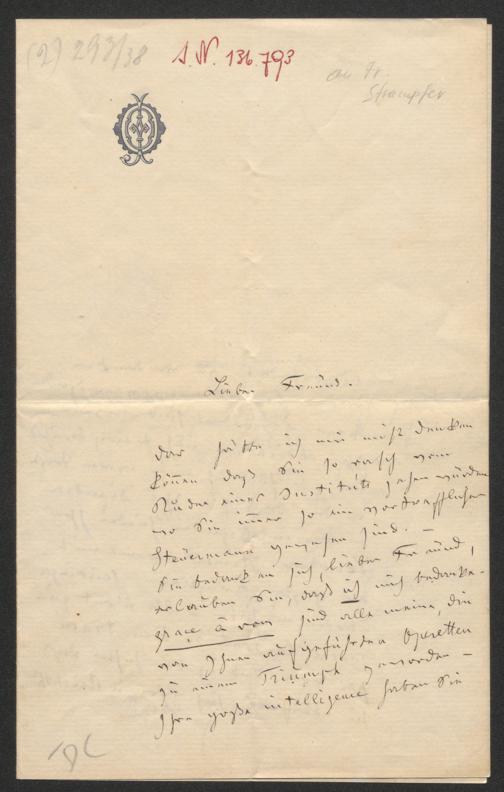 (2) 293/38
S.N. 136.793
an Fr.
Strampfer
Lieber Freund.
das hätte ich mir nicht denken
können daß Sie so rasch vom
Ruder eines Instituts gehen würden
wo Sie immer so ein vortrefflicher
Steuermann gewesen sind. –
Sie bedanken sich, lieber Freund,
erlauben Sie, daß ich mich bedanke –
grace à vous sind alle meine, die
von Ihnen aufgeführten Operetten
zu einem Triumph geworden –
Ihre große intelligence haben Sie